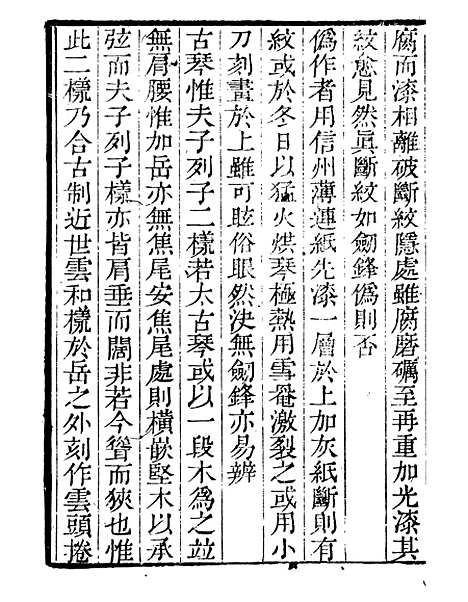 腐而漆相離破斷紋隱處雖腐磨礪至再重加光漆其
紋愈見然眞斷紋如劒鋒僞則否
僞作者用信州薄連紙光漆一層於上加灰紙斷則有
紋或於冬日以猛火烘琴極熱用雪罨激裂之或用小
刀刻畫於上雖可眩俗眼然決無劒鋒亦易辨
古琴惟夫子列子二樣若太古琴或以一段木爲之並
無肩腰惟加岳亦無焦尾安焦尾處則橫嵌堅木以承
弦而夫子列子樣亦皆肩垂而闊非若今聳而狹也惟
此二樣乃合古制近世雲和樣於岳之外刻作雲頭捲